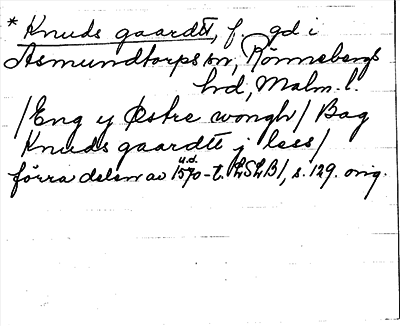 * Knuds gaardtt, f. gd i
Asmundtorps sn, Rönnebergs
hd, Malm. l.
/Eng y Østre wongh/ Bag
Knuds gaardtt j less/
förra delen av 1570-t. u.d. LSLB1, s. 129. orig.